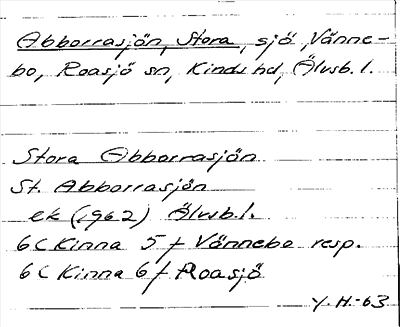 Abborrasjön, Stora, sjö, Vänne-
bo, Roasjö sn, Kinds hd, Älvsb. l.
Stora Abborrasjön
St. Abborrasjön
ek (1962) Älvsb. l.
6C Kinna 5 f Vännebo resp.
6C Kinna 6 f Roasjö
Y. H. -63